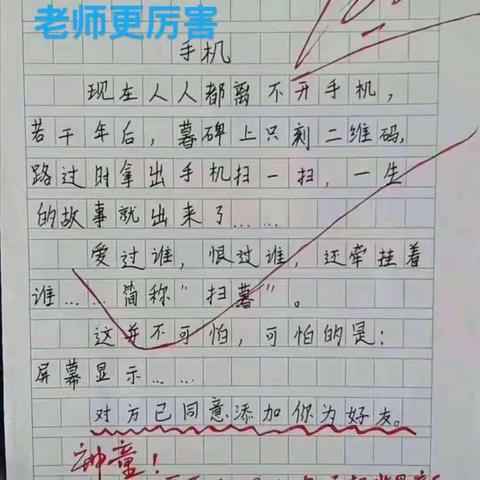 老师更厉害
手机
现在人人都离不开手机，
若干年后，墓碑上只刻二维码，
路过时拿出手机扫一扫，一生
的故事就出来了……
爱过谁，恨过谁，还牵挂着
谁……简称"扫墓"。
这并不可怕，可怕的是：
屏幕显示……
对方已同意添加你为好友。
神童！